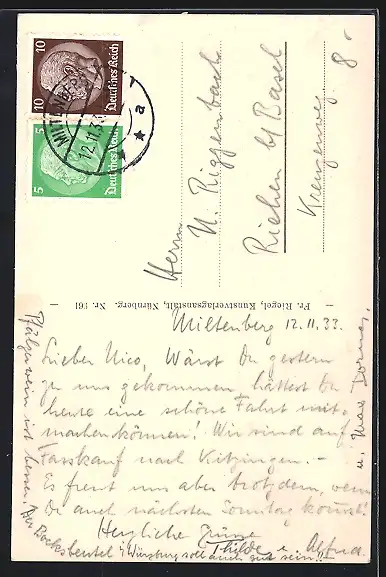 10
10
Deutsches Reich
5
5
Deutsches Reich
MILTENBERG
12.11.33
a
Herrn
N. Riggenbach
Riehen b/Basel
Kreuzweg 8
Fr. Riegel, Kunstverlagsanstalt, Nürnberg. Nr. 261
Miltenberg 12.11.33.
Lieber Nico, Wärst Du gestern
zu uns gekommen, hättest Du
heute eine schöne Fahrt mit-
machen können! Wir sind auf
Fasskauf nach Kitzingen. –
Es freut uns aber trotzdem, wenn
Du auch nächsten Sonntag kommst!
Herzliche Grüsse
Thilde u. Alfred
u. Max
Pfälzerwein ist besser. Der Bocksbeutel i/Würzburg soll auch gut sein!!